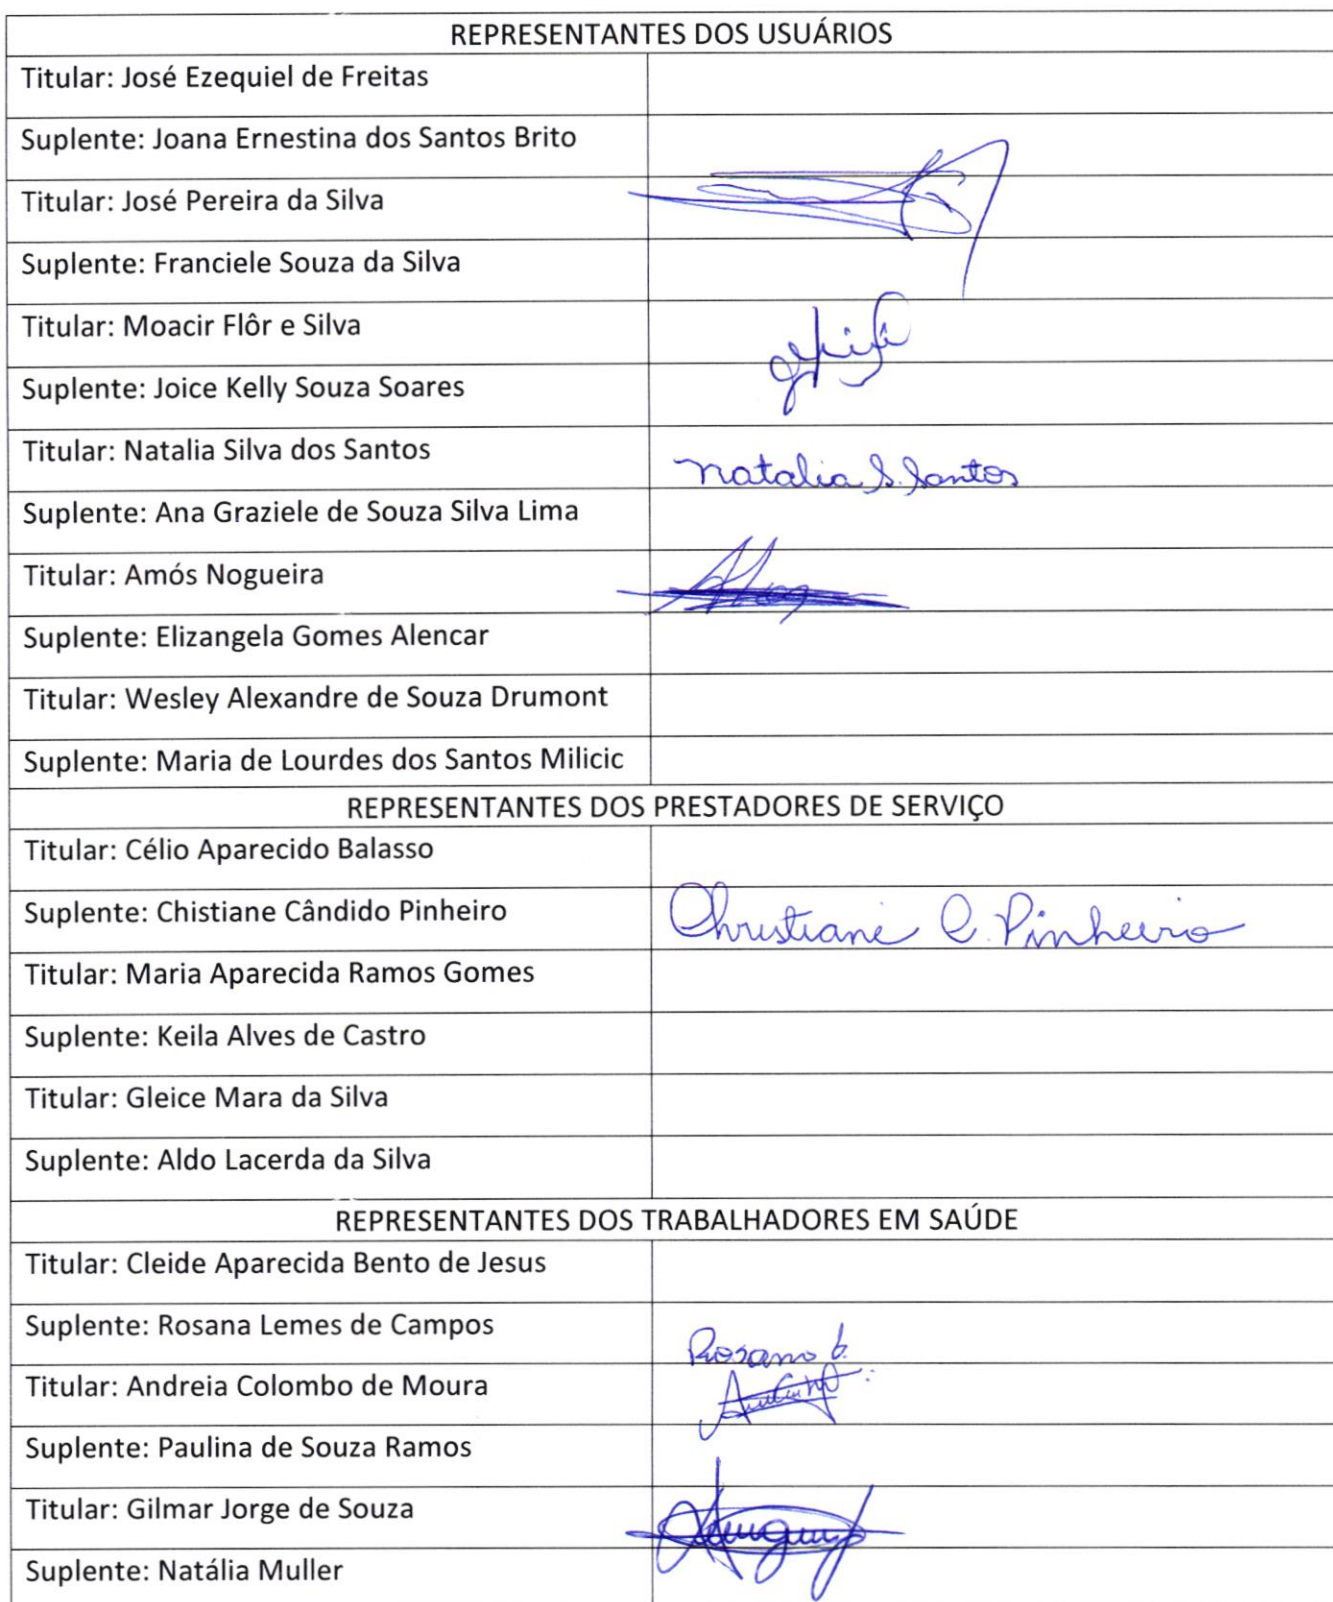 REPRESENTANTES DOS USUÁRIOS
Titular: José Ezequiel de Freitas
Suplente: Joana Ernestina dos Santos Brito
Titular: José Pereira da Silva
Suplente: Franciele Souza da Silva
Titular: Moacir Flôr e Silva
Suplente: Joice Kelly Souza Soares
Titular: Natalia Silva dos Santos
Natalia S. Santos
Suplente: Ana Graziele de Souza Silva Lima
Titular: Amós Nogueira
Suplente: Elizangela Gomes Alencar
Titular: Wesley Alexandre de Souza Drumont
Suplente: Maria de Lourdes dos Santos Milicic
REPRESENTANTES DOS PRESTADORES DE SERVIÇO
Titular: Célio Aparecido Balasso
Suplente: Chistiane Cândido Pinheiro
Christiane C. Pinheiro
Titular: Maria Aparecida Ramos Gomes
Suplente: Keila Alves de Castro
Titular: Gleice Mara da Silva
Suplente: Aldo Lacerda da Silva
REPRESENTANTES DOS TRABALHADORES EM SAÚDE
Titular: Cleide Aparecida Bento de Jesus
Suplente: Rosana Lemes de Campos
Titular: Andreia Colombo de Moura
Suplente: Paulina de Souza Ramos
Titular: Gilmar Jorge de Souza
Suplente: Natália Muller